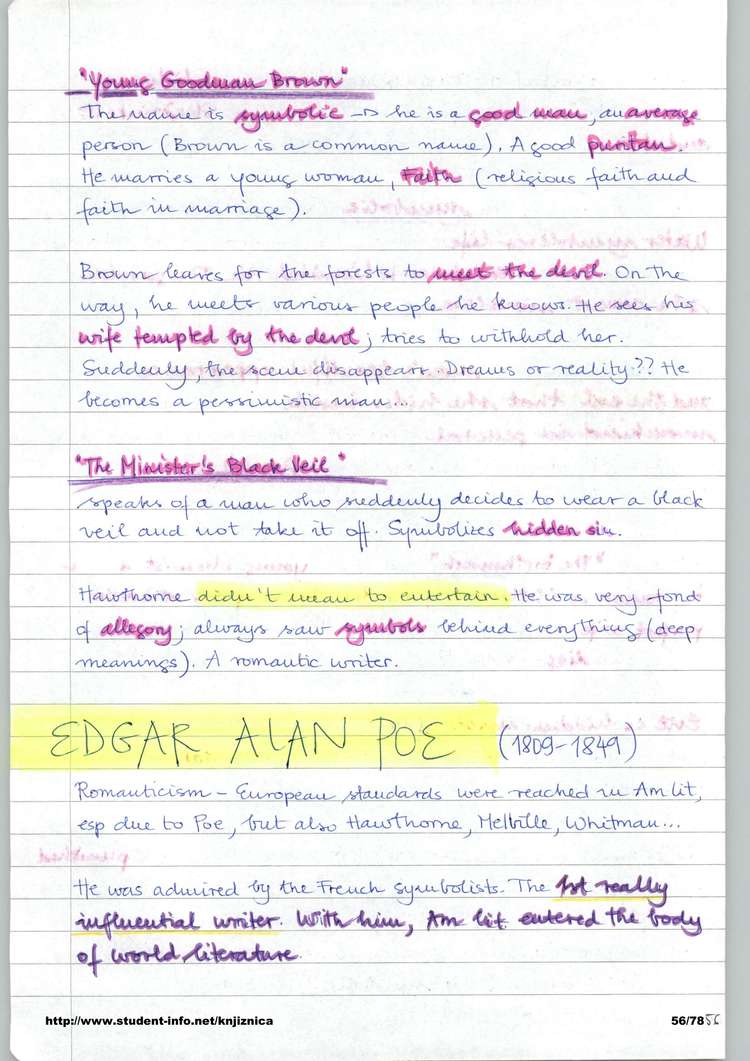 "Young Goodman Brown"
The name is symbolic → he is a good man, an average
person (Brown is a common name). A good puritan.
He marries a young woman, Faith (religious faith and
faith in marriage).
Brown leaves for the forests to meet the devil. On the
way, he meets various people he knows. He sees his
wife tempted by the devil; tries to withhold her.
Suddenly, the scene disappears. Dreams or reality?? He
becomes a pessimistic man...
"The Minister's Black Veil"
speaks of a man who suddenly decides to wear a black
veil and not take it off. Symbolizes hidden sin.
Hawthorne didn't mean to entertain. He was very fond
of allegory; always saw symbols behind everything (deep
meanings). A romantic writer.
EDGAR ALAN POE (1809-1849)
Romanticism - European standards were reached in Am lit,
esp due to Poe, but also Hawthorne, Melville, Whitman...
He was admired by the French symbolists. The 1st really
influential writer. With him, Am lit entered the body
of world literature.
http://www.student-info.net/knjiznica 56/78 56